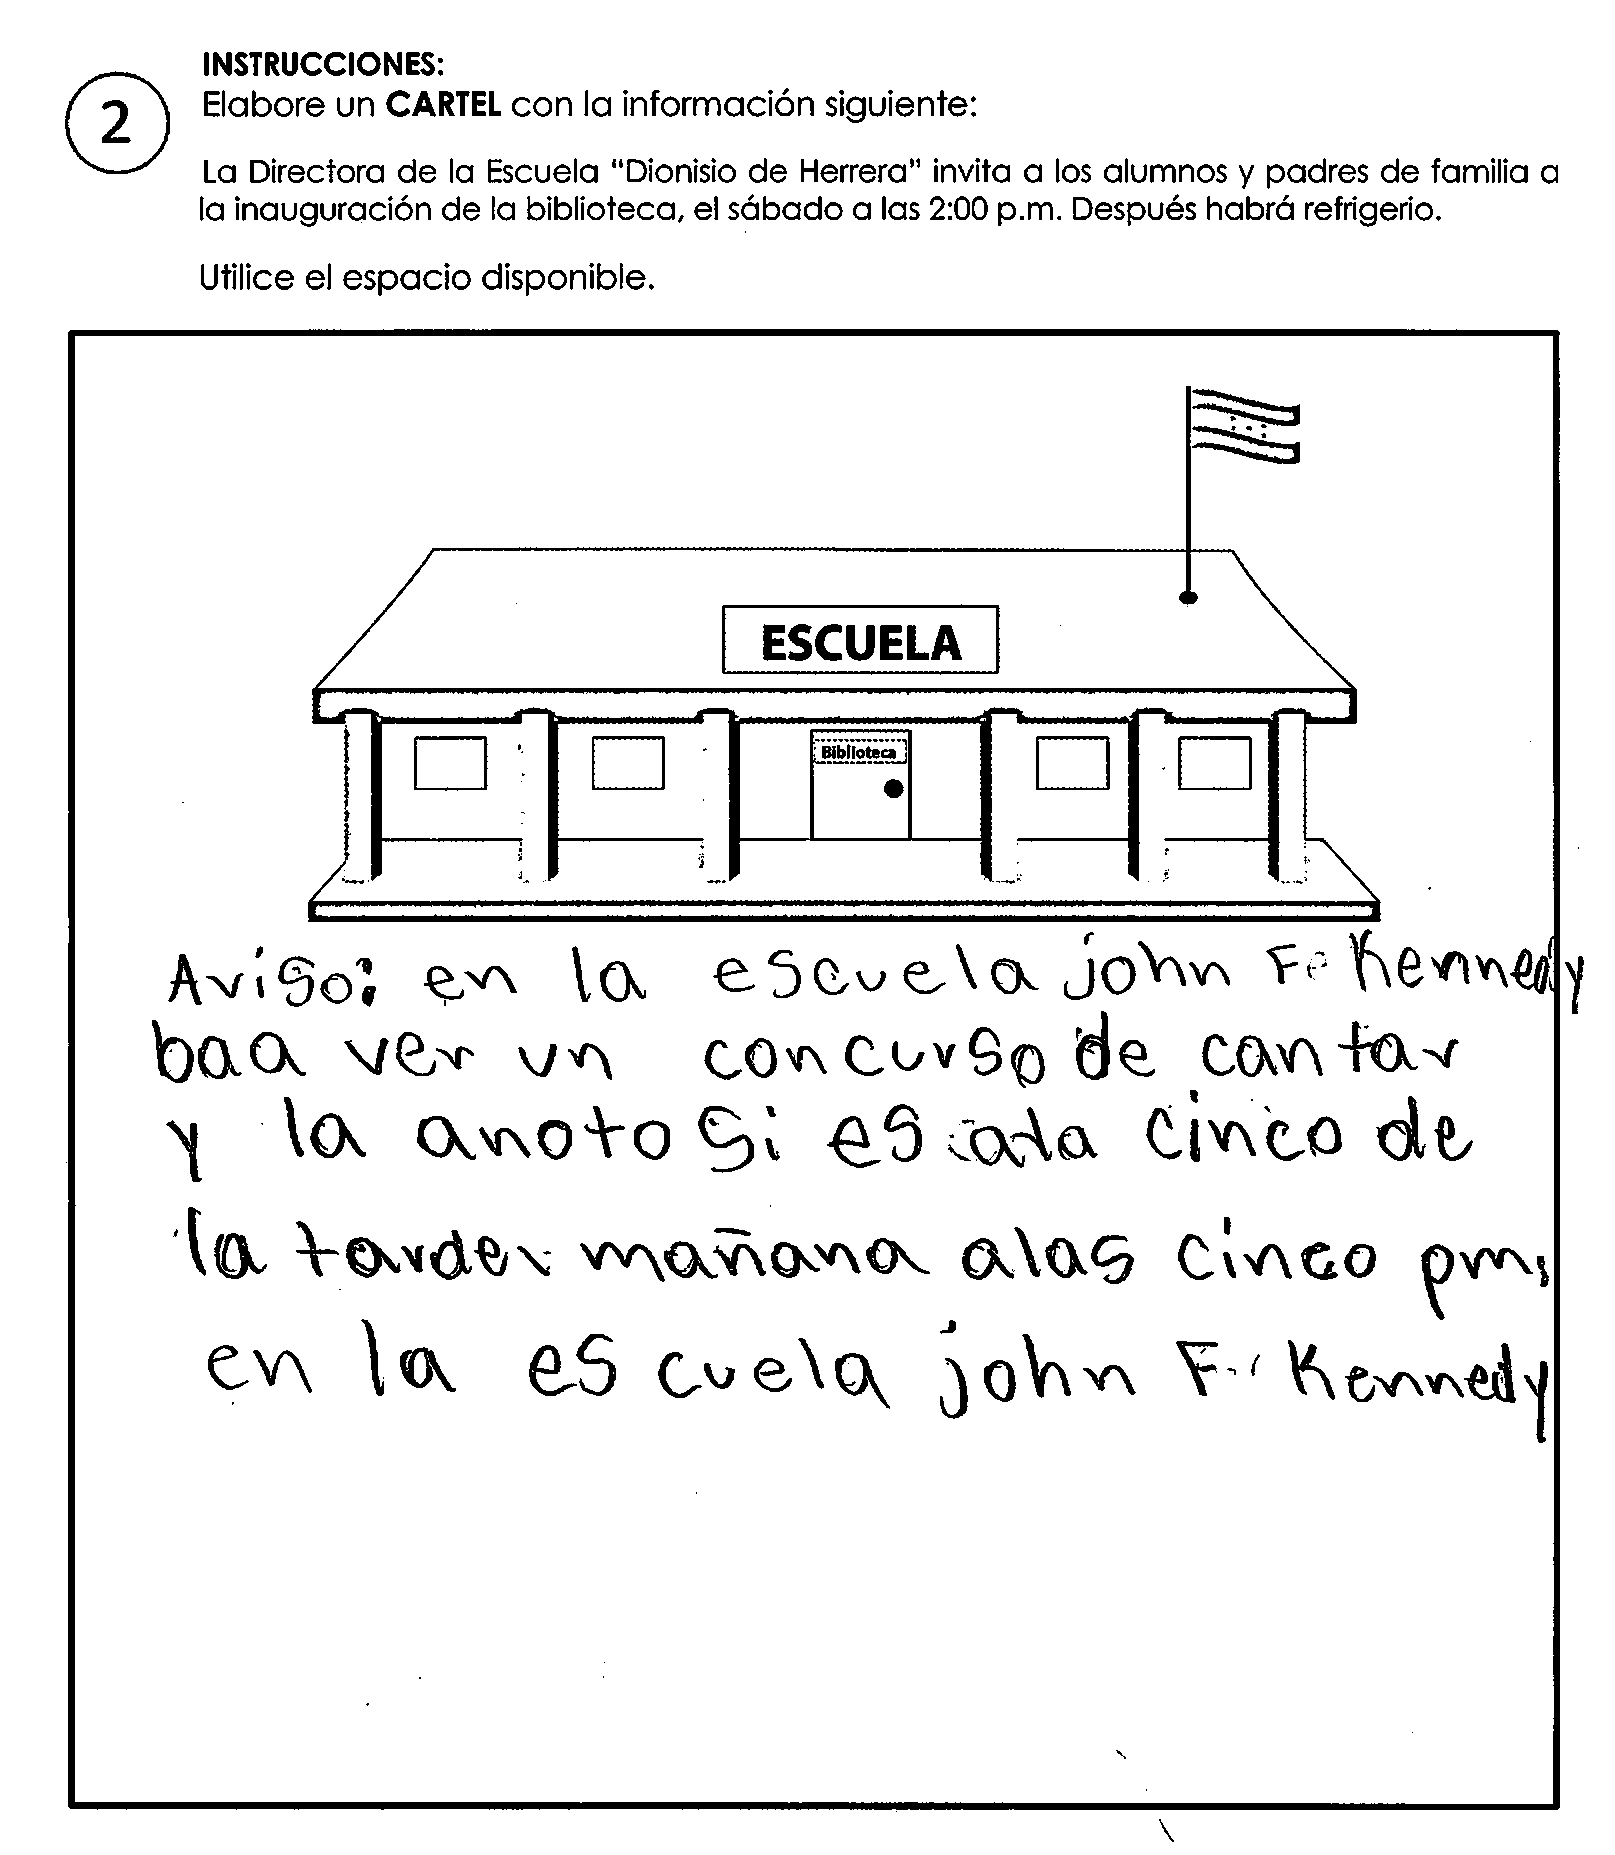 INSTRUCCIONES:
2
Elabore un CARTEL con la información siguiente:
La Directora de la Escuela "Dionisio de Herrera" invita a los alumnos y padres de familia a
la inauguración de la biblioteca, el sábado a las 2:00 p.m. Después habrá refrigerio.
Utilice el espacio disponible.
ESCUELA
Biblioteca
Aviso: en la escuela john F. Kennedy
baa ver un concurso de cantar
y la anotosi es ala cinco de
la tarde. mañana alas cinco pm.
en la escuela john F. Kennedy